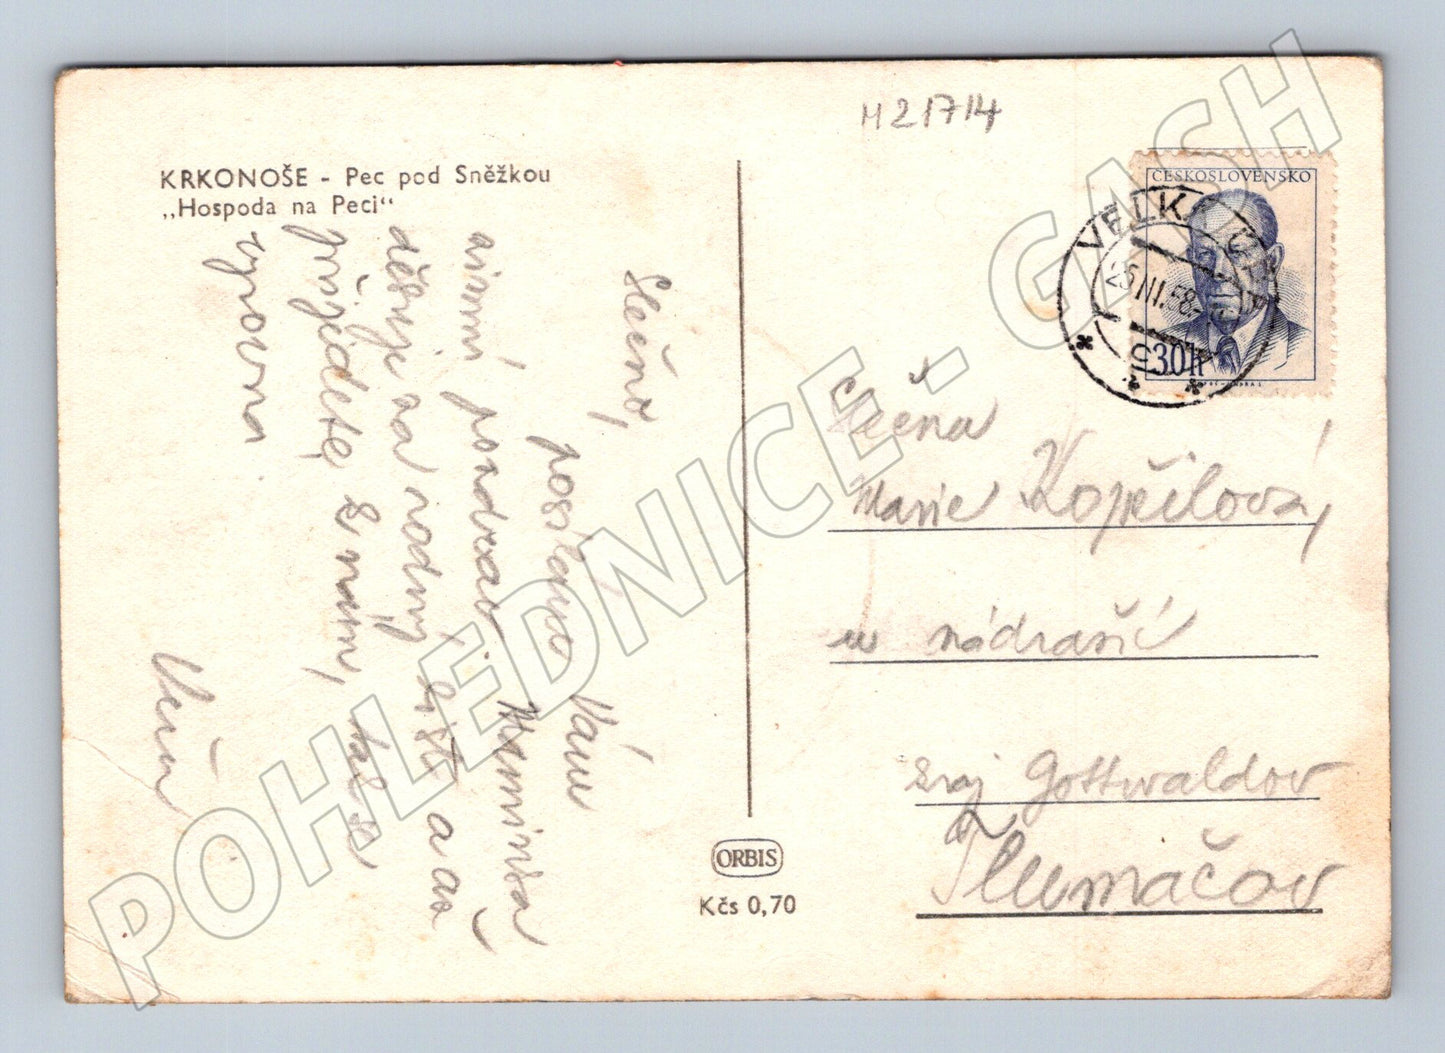 M21714
KRKONOŠE - Pec pod Sněžkou
„Hospoda na Peci“
Slečno,
posílám Vám
zimní pozdrav. Maminka
děkuje za rodný list a až
přijedete k nám, tak se
vyrovná
Věra
ČESKOSLOVENSKO
30 h
VELKÁ ÚPA
25.III.58
Slečna
Marie Kopřilová,
u nádraží
kraj Gottwaldov
Tlumačov
ORBIS
Kčs 0,70
POHLEDNICE - GASH